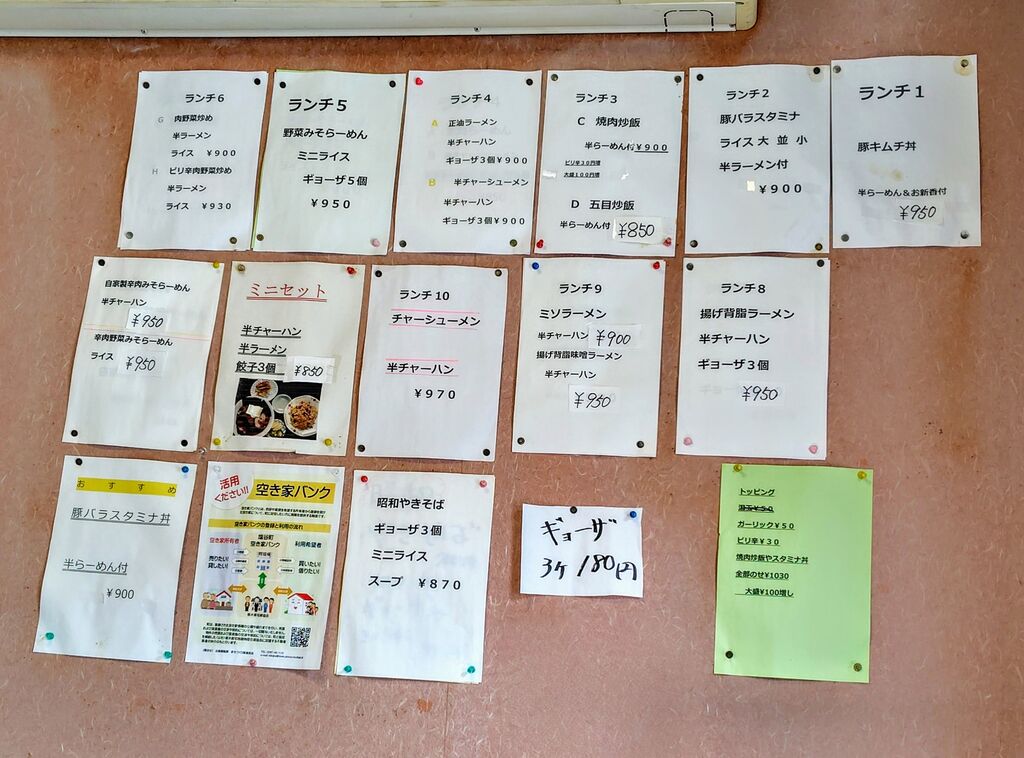 ランチ6
G 肉野菜炒め
半ラーメン
ライス ¥900
H ピリ辛肉野菜炒め
半ラーメン
ライス ¥930
ランチ5
野菜みそらーめん
ミニライス
ギョーザ5個
¥950
ランチ4
A 正油ラーメン
半チャーハン
ギョーザ3個¥900
B 半チャーシューメン
半チャーハン
ギョーザ3個¥900
ランチ3
C 焼肉炒飯
半らーめん付¥900
ピリ辛30円増
大盛100円増
D 五目炒飯
半らーめん付 ¥850
ランチ2
豚バラスタミナ
ライス 大 並 小
半ラーメン付
¥900
ランチ1
豚キムチ丼
半らーめん&お新香付
¥950
自家製辛肉みそらーめん
半チャーハン
¥950
辛肉野菜みそらーめん
ライス ¥950
ミニセット
半チャーハン
半ラーメン
餃子3個 ¥850
ランチ10
チャーシューメン
半チャーハン
¥970
ランチ9
ミソラーメン
半チャーハン ¥900
揚げ背脂味噌ラーメン
半チャーハン
¥950
ランチ8
揚げ背脂ラーメン
半チャーハン
ギョーザ3個
¥950
おすすめ
豚バラスタミナ丼
半らーめん付
¥900
活用
ください!!
空き家バンク
空き家バンクの登録と利用の流れ
空き家所有者
塩谷町
空き家バンク
利用希望者
売りたい!
貸したい!
買いたい!
借りたい!
昭和やきそば
ギョーザ3個
ミニライス
スープ ¥870
ギョーザ
3ケ 180円
トッピング
ガーリック¥50
ピリ辛¥30
焼肉炒飯やスタミナ丼
全部のせ¥1030
大盛¥100増し